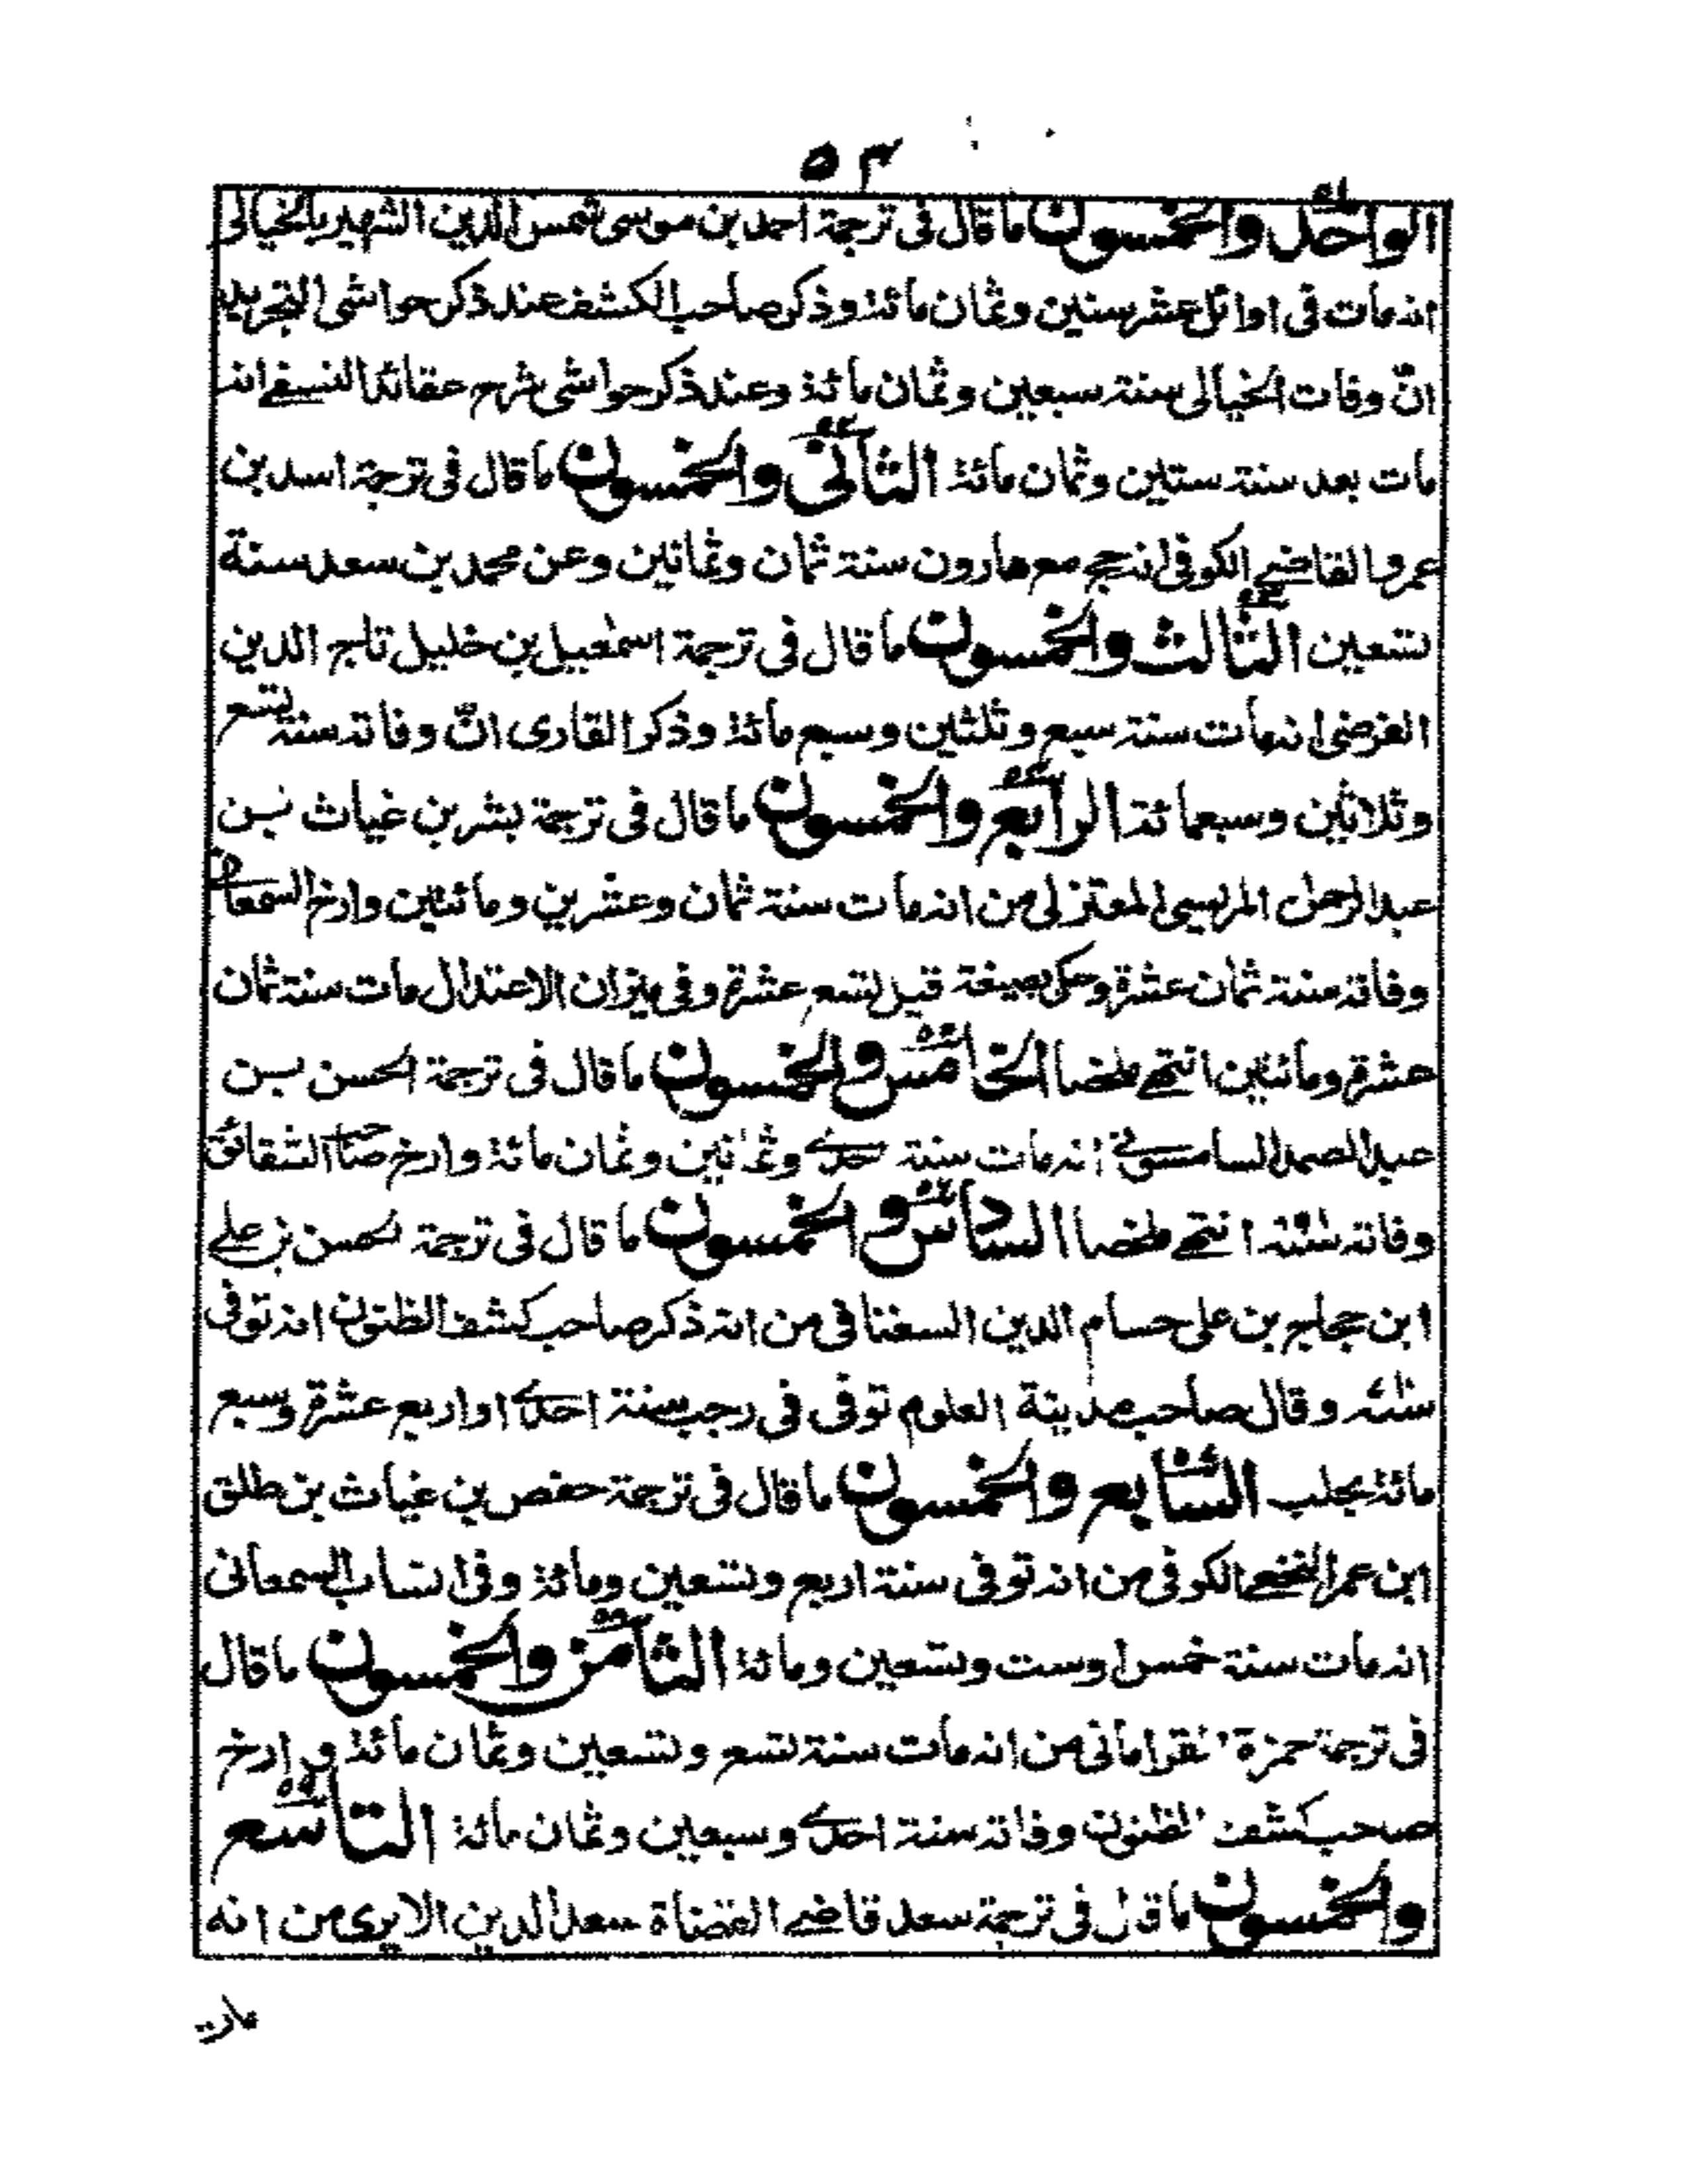 ٥٣
الواحد والخمسون ما قال فى ترجمة احمد بن موسى شمس الدين الشهير بالخيالى
انه مات فى اوائل عشر سنين وثمان مائة وذكر صاحب الكشف عند ذكر حواشى التجريد
انّ وفات الخيالى سنة سبعين وثمان مائة وعند ذكر حواشى شرح عقائد النسفے انه
مات بعد سنة ستين وثمان مائة الثانی والخمسون ما قال فى ترجمة اسد بن
عمرو القاضے الكوفى انه حج مع هارون سنة ثمان وثمانين وعن محمد بن سعد سنة
تسعين الثالث والخمسون ما قال فى ترجمة اسمٰعيل بن خليل تاج الدين
الفرضى انه مات سنة سبع وثلثين وسبع مائة وذكر القارى انّ وفاته سنة تسع
وثلاثين وسبعمائة الرابع والخمسون ما قال فى ترجمة بشر بن غياث بن
عبد الرحمٰن المريسى المعتزلى من انه مات سنة ثمان وعشرين ومائتين وارخ السمعانی
وفاته سنة ثمان عشرة وحكى بصيغة قيل تسع عشرة وفى ميزان الاعتدال مات سنة ثمان
عشرة ومائتين انتهے ملخصا الخامس والخمسون ما قال فى ترجمة الحسن بن
عبد الصمد السامسونے انه مات سنة احدے وثمانين وثمان مائة وارخ صاحب الشقائق
وفاته انتهے ملخصا السادس والخمسون ما قال فى ترجمة الحسن بن علے
ابن حجاج بن على حسام الدين السغناقى من انه ذكر صاحب كشف الظنون انه توفى
وقال صاحب مدينة العلوم توفى فى رجب سنة احدے او اربع عشرة وسبع
مائة بحلب السابع والخمسون ما قال فى ترجمة حفص بن غياث بن طلق
ابن عمر النخعے الكوفى من انه توفى سنة اربع وتسعين ومائة وفى انساب السمعانى
انه مات سنة خمس او ست وتسعين ومائة الثامن والخمسون ما قال
فى ترجمة حمزة القرامانى من انه مات سنة تسع وتسعين وثمان مائة وارخ
صاحب كشف الظنون وفاته سنة احدے وسبعين وثمان مائة التاسع
والخمسون ما قال فى ترجمة سعد قاضے القضاة سعد الدين الديرى من انه
مات